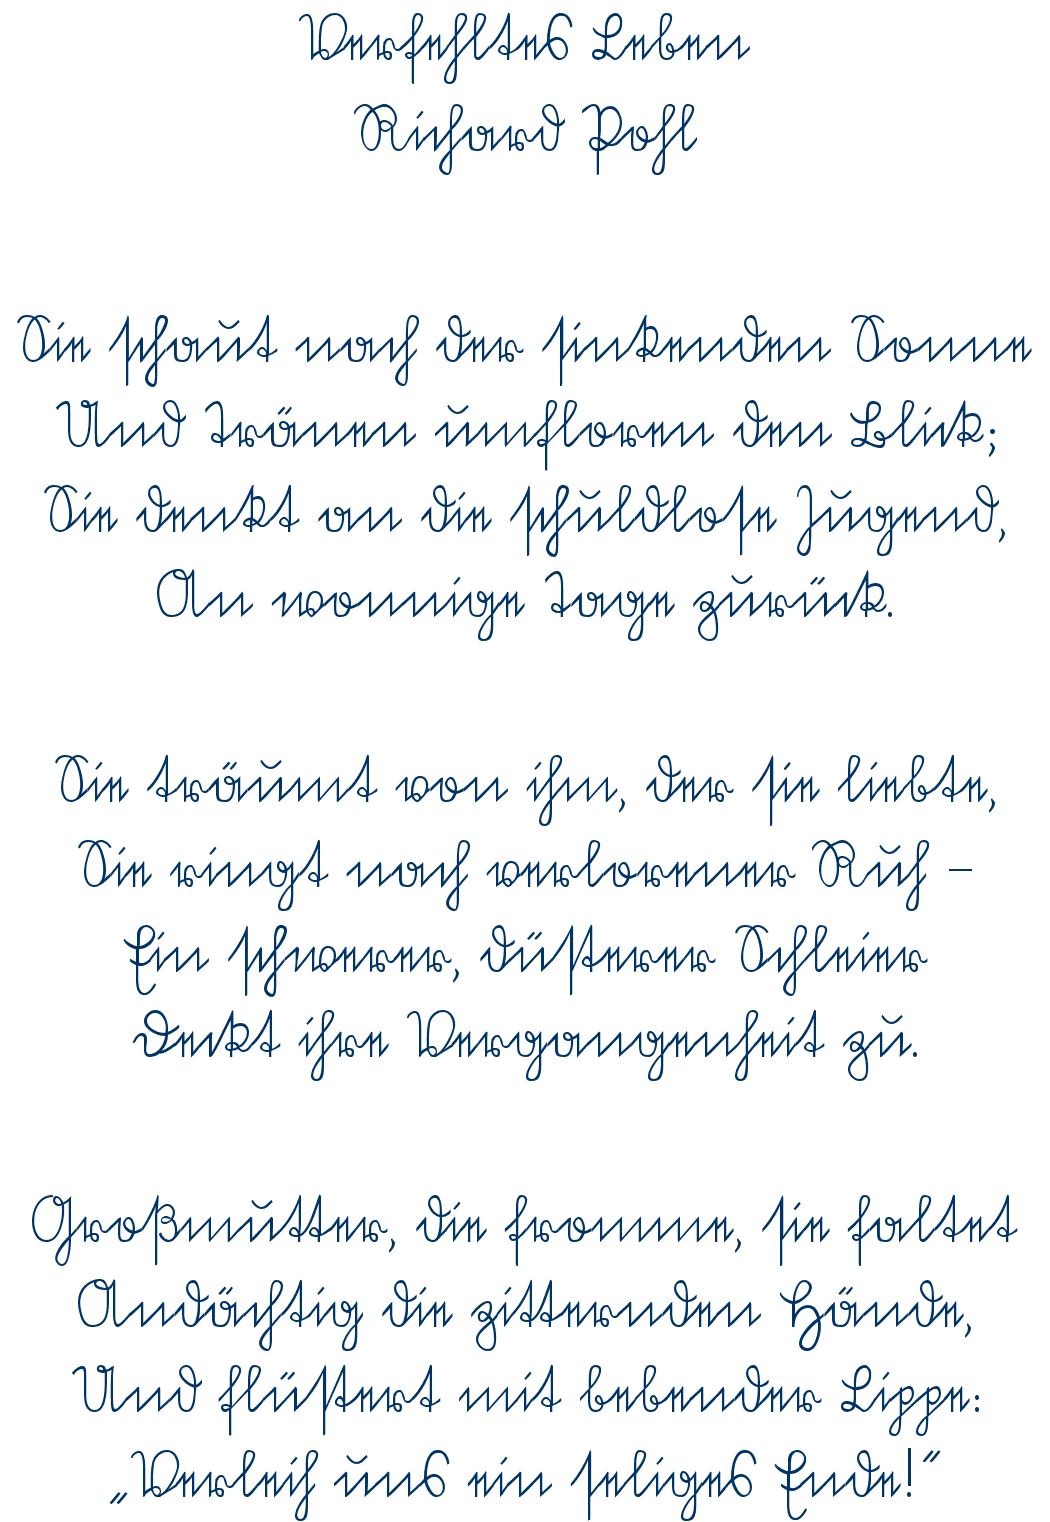 Verfehltes Leben
Richard Pohl
Sie schaut nach der sinkenden Sonne
Und Tränen umfloren den Blick;
Sie denkt an die schuldlose Jugend,
An wonnige Tage zurück.
Sie träumt von ihm, der sie liebte,
Sie ringt nach verlorener Ruh –
Ein schwerer, düsterer Schleier
Deckt ihre Vergangenheit zu.
Großmutter, die fromme, sie faltet
Andächtig die zitternden Hände,
Und flüstert mit bebender Lippe:
„Verleih uns ein seliges Ende!“